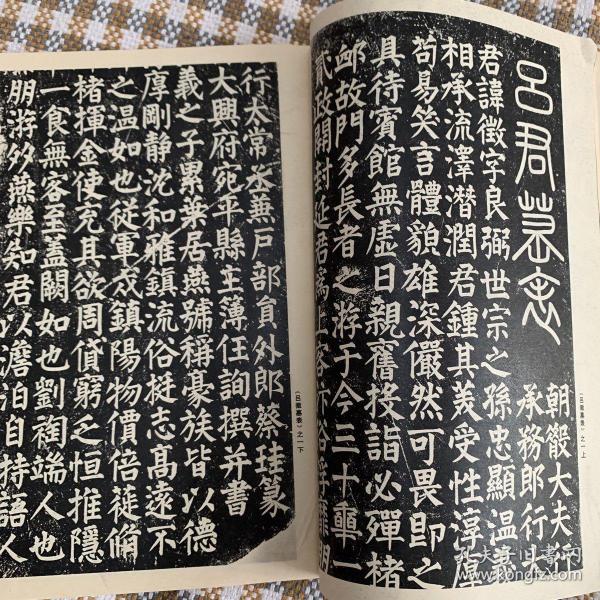 呂君墓表
朝散大夫行
承務郎行大
君諱徵字良弼世宗之孫忠顯溫義
相承流澤潛潤君鍾其美受性淳厚
苟易笑言體貌雄深儼然可畏即之
具待賓館無虛日親舊投詣必殫楮
邺故門多長者之游于今三十車一
貳政開封延君席上客不
《呂徵墓表》之一上
行太常丞蕪戶部員外郎蔡珪篆
大興府宛平縣主簿任詢撰并書
義之子累葉居燕號稱豪族皆以德
厚剛静沈和雅鎮流俗挺志高遠不
之温如也従軍戍鎮陽物價倍蓰偹
楮揮金使充其欲周貸窮之恒推隱
一食無客至蓋闕如也劉陶端人也
朋游效燕樂知君以澹泊自持語人
《呂徵墓表》之一下
孔夫子旧书网
www.kongfz.com